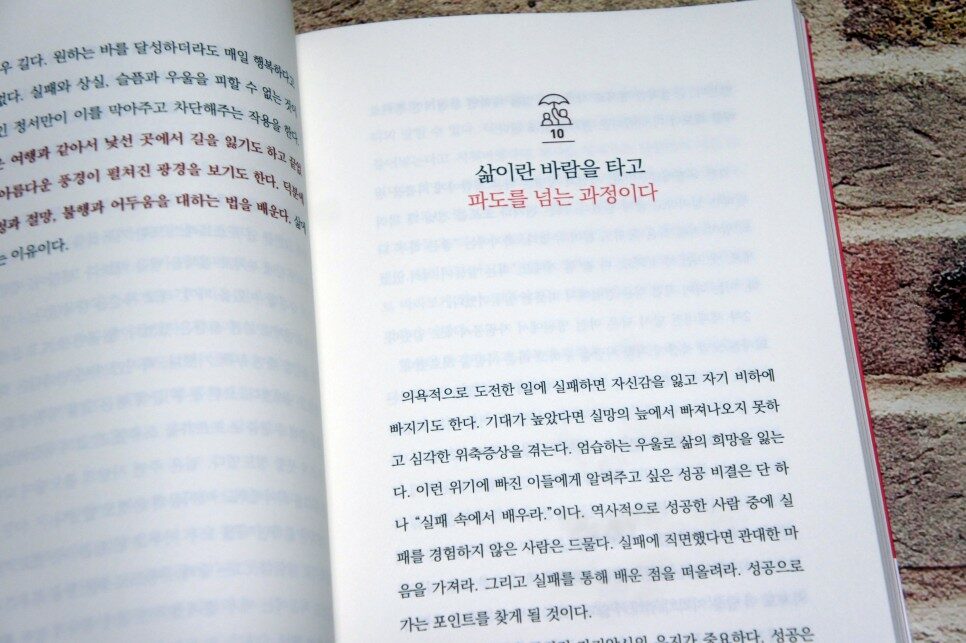 우 길다. 원하는 바를 달성하더라도 매일 행복하다고
없다. 실패와 상실, 슬픔과 우울을 피할 수 없는 것이
인 정서만이 이를 막아주고 차단해주는 작용을 한다.
은 여행과 같아서 낯선 곳에서 길을 잃기도 하고 끝없
아름다운 풍경이 펼쳐진 광경을 보기도 한다. 덕분에
절망, 불행과 어두움을 대하는 법을 배운다. 삶이
는 이유이다.
10
삶이란 바람을 타고
파도를 넘는 과정이다
의욕적으로 도전한 일에 실패하면 자신감을 잃고 자기 비하에
빠지기도 한다. 기대가 높았다면 실망의 늪에서 빠져나오지 못하
고 심각한 위축증상을 겪는다. 엄습하는 우울로 삶의 희망을 잃는
다. 이런 위기에 빠진 이들에게 알려주고 싶은 성공 비결은 단 하
나 “실패 속에서 배우라.”이다. 역사적으로 성공한 사람 중에 실
패를 경험하지 않은 사람은 드물다. 실패에 직면했다면 관대한 마
음을 가져라. 그리고 실패를 통해 배운 점을 떠올려라. 성공으로
가는 포인트를 찾게 될 것이다.
의지가 중요하다. 성공은